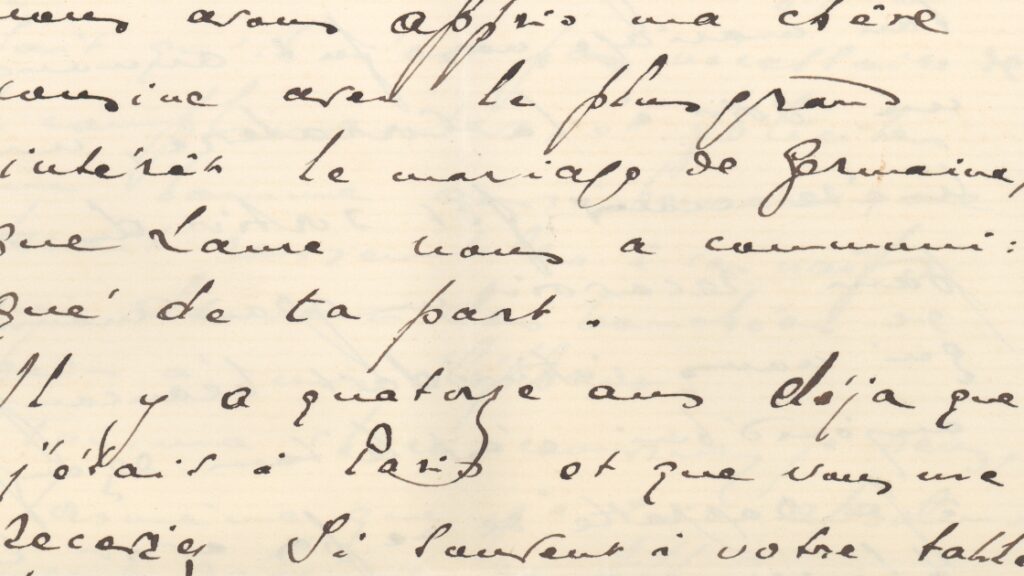 nous avons appris ma chère
cousine avec le plus grand
intérêt le mariage de Germaine,
que Laure nous a communi:
qué de ta part.
Il y a quatorze ans déja que
j'étais à Paris et que vous me
receviez si souvent à votre table